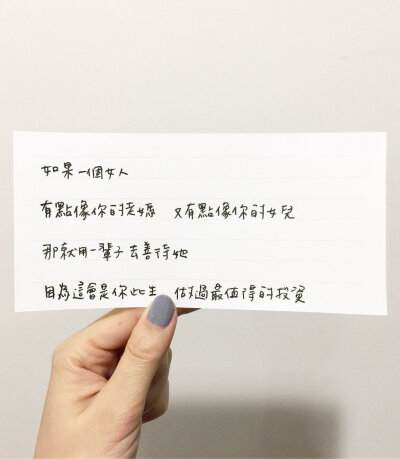 如果一個女人
有點像你的老媽 又有點像你的女兒
那就用一輩子去善待她
因為這會是你此生 做過最值得的投資